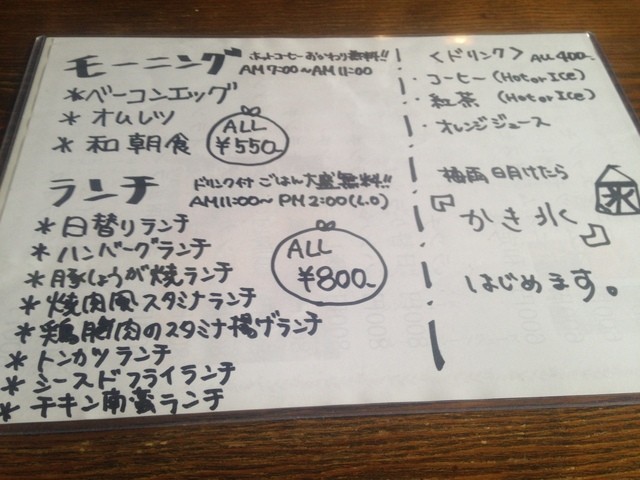 モーニング ホットコーヒーおかわり無料!!
AM7:00〜AM11:00
*ベーコンエッグ
*オムレツ
*和朝食
ALL
¥550-
ランチ ドリンク付 ごはん大盛無料!!
AM11:00〜PM2:00(L.O)
*日替りランチ
*ハンバーグランチ
*豚しょうが焼ランチ
*焼肉風スタミナランチ
*鶏胸肉のスタミナ揚げランチ
*トンカツランチ
*シースドフライランチ
*チキン南蛮ランチ
ALL
¥800-
<ドリンク> ALL 400-
・コーヒー(Hot or ICe)
・紅茶(Hot or ICe)
・オレンジジュース
梅雨日月けたら
『かき氷』
氷
はじめます。